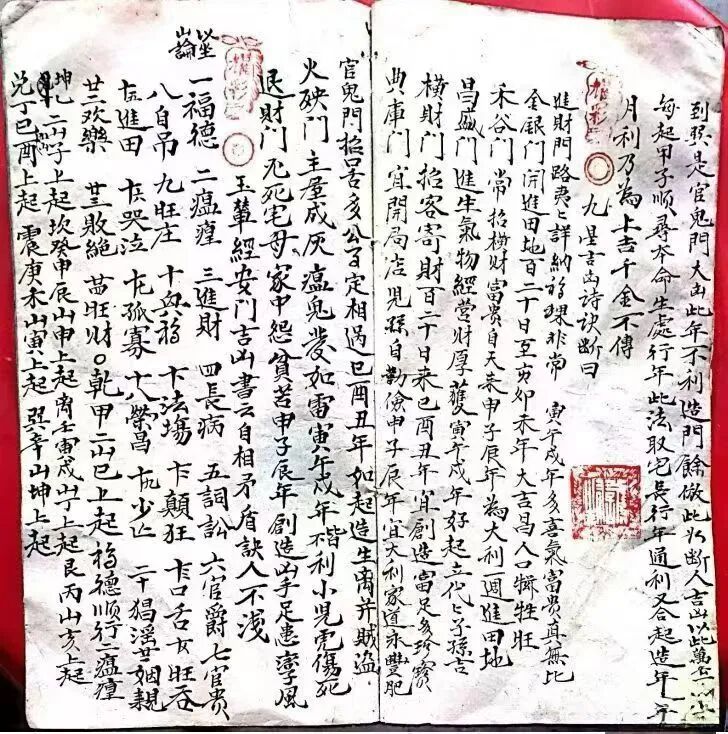 到巽是官鬼門大凶此年不利造門餘倣此以斷人吉凶此萬
每起甲子順尋本命生處行年此法取宅長行年通利又合起造年年
月利乃為上吉千金不傳
九星吉凶詩訣斷曰
進財門路夷夷詳納福禄非常 寅午戌年多喜氣富貴真無比
金銀門開進田地百二十日至亥卯未年大吉昌人口犧牲旺
禾谷門常招橫財富貴自天來申子辰年為大利一週進田地
昌盛門進生氣物經營財厚獲寅午戌年好起立代代子孫吉
橫財門招客寄財百二十日來巳酉丑年宜創造富足多珍寶
典庫門宜開局店兒孫自勤儉申子辰年宜大利家道永豐肥
官鬼門招口舌多公百定相遇巳酉丑年如起造生离并賊盜
火殃門主屋成灰瘟鬼發如雷寅午戌年皆不利小兒虎傷死
退財門死死宅母家中怨貧苦申子辰年創造凶手足患孿風
玉輦經安門吉凶書云自相矛盾訣人不浅
坐山論
一福德 二瘟瘟 三進財 四長病 五詞訟 六官爵 七官貴
八自吊 九旺庄 十興福 十一法場 十二顛狂 十三口舌 十四旺蚕
十五進田 十六哭泣 十七孤寡 十八榮昌 十九少亡 二十猖淫 廿一姻親
廿二欢樂 廿三敗絕 廿四旺財〇乾甲二山巳上起福德順行二瘟瘟
坤乙二山子上起坎癸申辰山申上起离壬寅戌山丁上起艮丙山亥上起
兌丁巳酉上起 震庚未山寅上起 巽辛山坤上起